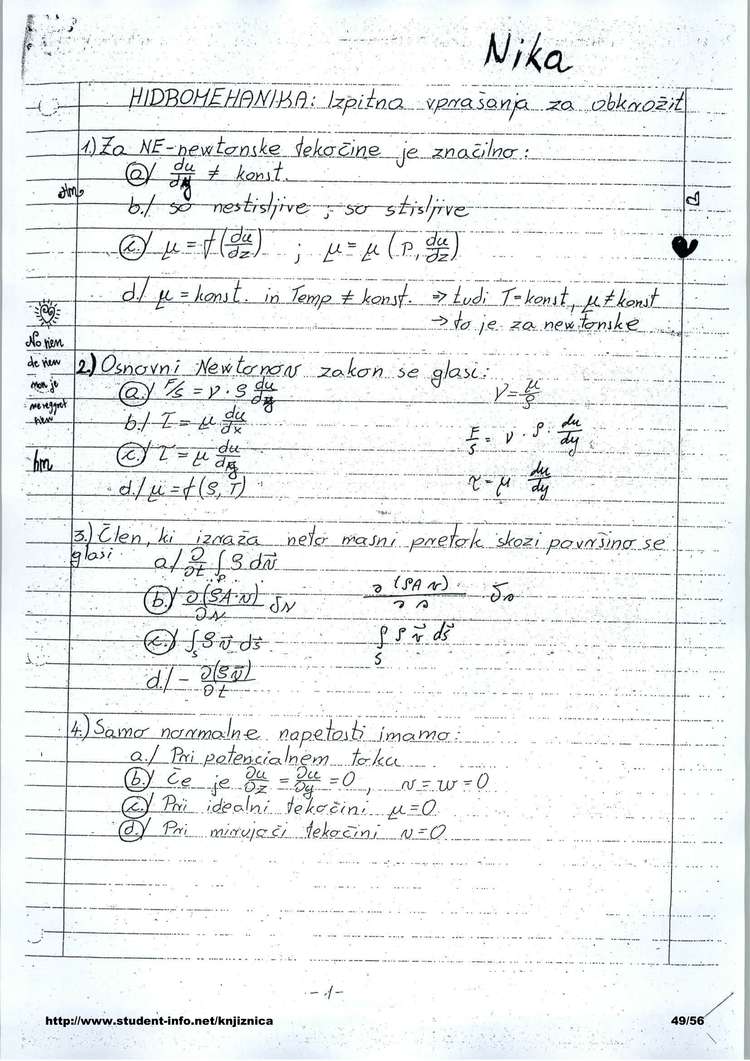 Nika
HIDROMEHANIKA: Izpitna vprašanja za obkrožit
1.) Za NE-newtonske tekočine je značilno:
a./ du/dy ≠ konst.
hm
b./ so nestisljive ; so stisljive
c./ μ = f(du/dz) ; μ = μ(P, du/dz)
d./ μ = konst. in Temp ≠ konst. ⇒ tudi T=konst, μ≠konst
→ to je za newtonske
No rien
de rien
non je
ne reggret
rien
hm
2.) Osnovni Newtonov zakon se glasi:
a./ F/s = ν · ρ du/dy
ν = μ/ρ
b./ τ = μ du/dx
F/s = ν · ρ · du/dy
c./ τ = μ du/dy
τ = μ du/dy
d./ μ = f(ρ, T)
3.) Člen, ki izraža neto masni pretok skozi površino se
glasi
a./ ∂/∂t ∫ ρ dv⃗
b./ ∂(ρA·v)/∂s δs
∂(ρAv)/∂s δs
c./ ∫s ρ v⃗ ds⃗
∫s ρ v⃗ ds⃗
d./ - ∂(ρv⃗)/∂t
4.) Samo normalne napetosti imamo:
a./ Pri potencialnem toku
b./ Če je ∂u/∂z = ∂u/∂y = 0, v = w = 0
c./ Pri idealni tekočini μ=0
d./ Pri mirujoči tekočini v=0
-1-
http://www.student-info.net/knjiznica
49/56